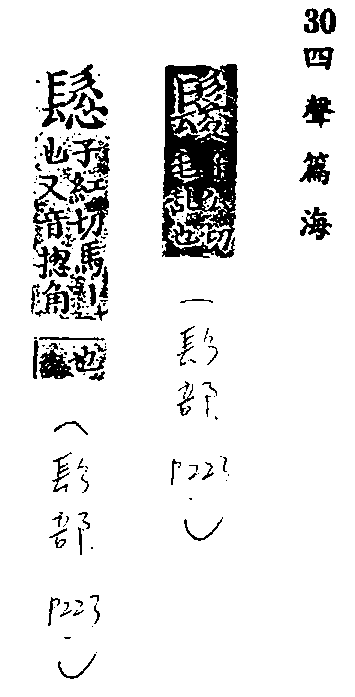 30
四聲篇海
鬉
切
毛乱也
(髟部
P223
)
鬆
子紅切馬
也又音揔角
也
(髟部
P223
)